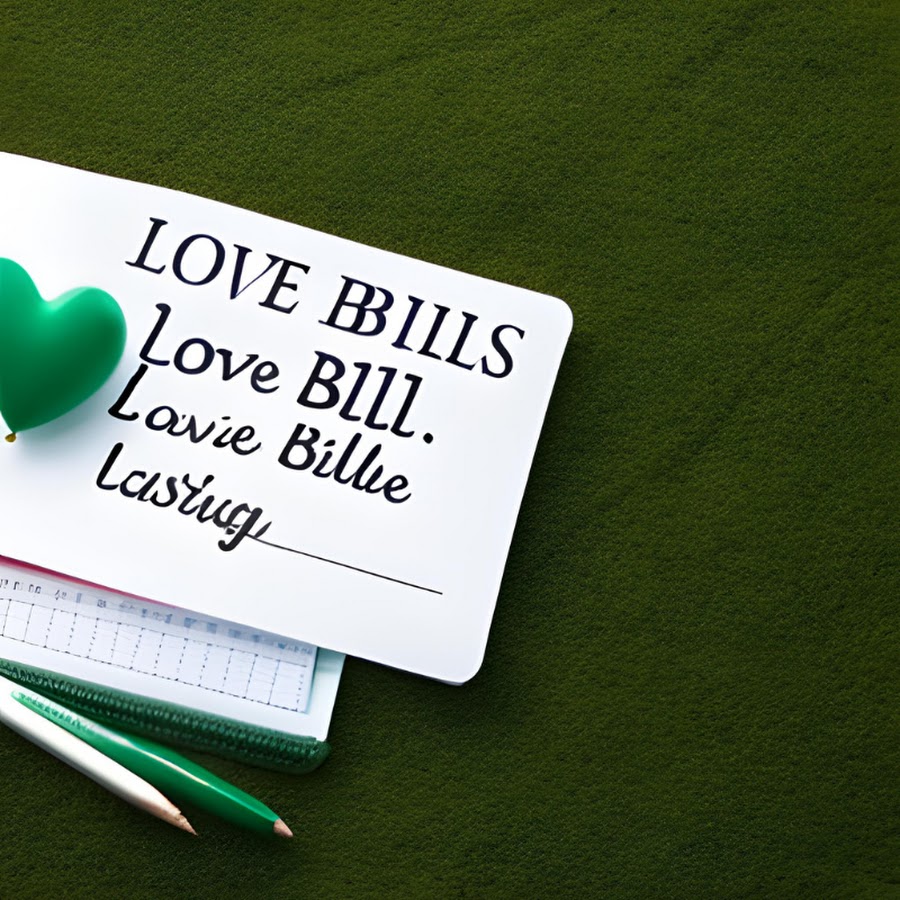 LOVE BBILLS
Love BIll.
Lovie Billie
Lasting